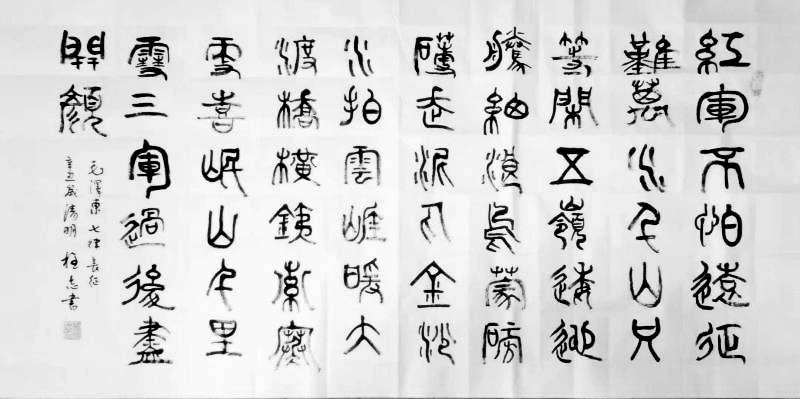 紅軍不怕遠征
難萬水千山只
等閑五嶺逶迤
騰細浪烏蒙磅
礴走泥丸金沙
水拍雲崖暖大
渡橋橫鐵索寒
更喜岷山千里
雪三軍過後盡
開顏
毛澤東七律長征
辛丑歲清明書